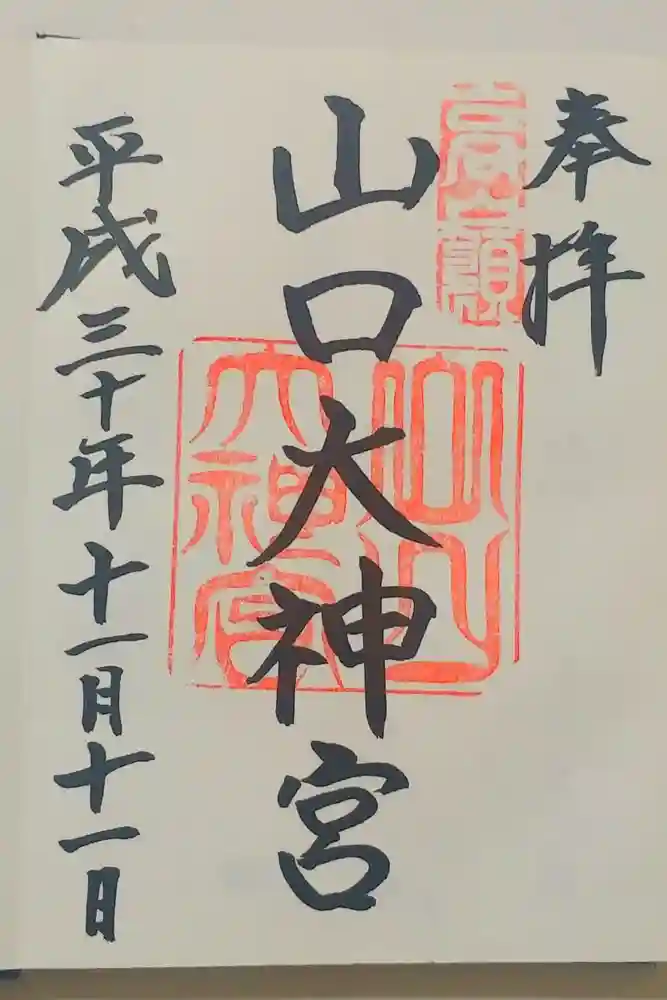 奉拝
高嶺
山口大神宮
山口大神宮
平成三十年十一月十一日